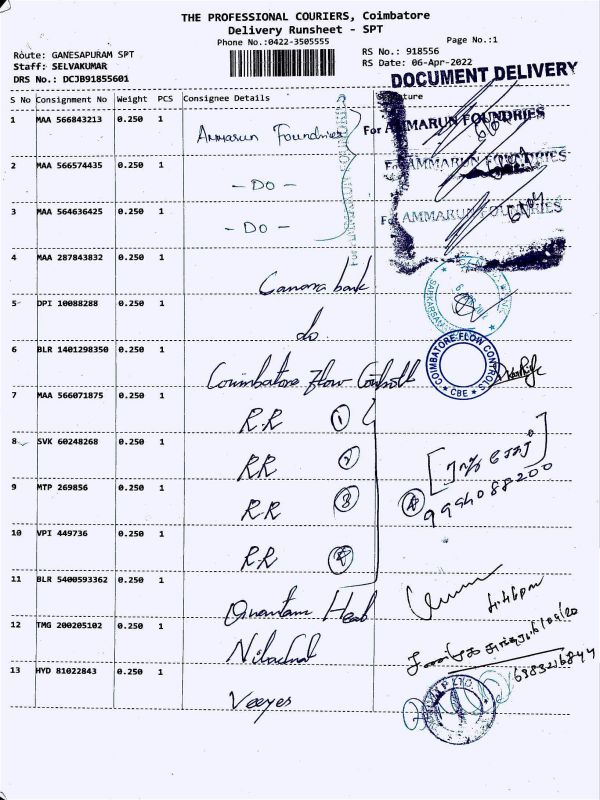 THE PROFESSIONAL COURIERS, Coimbatore
Delivery Runsheet - SPT
Phone No.:0422-3505555
Page No.:1
Route: GANESAPURAM SPT
RS No.: 918556
Staff: SELVAKUMAR
RS Date: 06-Apr-2022
DRS No.: DCJB91855601
DOCUMENT DELIVERY
S No Consignment No Weight PCS Consignee Details
1 MAA 566843213 0.250 1 Ammarun Foundries For AMMARUN FOUNDRIES
2 MAA 566574435 0.250 1 - Do - For AMMARUN FOUNDRIES
3 MAA 564636425 0.250 1 - Do - For AMMARUN FOUNDRIES
For AMMARUN FOUNDRIES
4 MAA 287843832 0.250 1 Canara bank
5 DPI 10088288 0.250 1 do
6 BLR 1401298350 0.250 1 Coimbatore Flow Controll COIMBATORE FLOW CONTROLS ★ CBE ★
7 MAA 566071875 0.250 1 RR 1
8 SVK 60248268 0.250 1 RR 2
9 MTP 269856 0.250 1 RR 3
9994088200
10 VPI 449736 0.250 1 RR 4
11 BLR 5400593362 0.250 1 Quantam Heat 4.46pm
12 TMG 200205102 0.250 1
6383216844
13 HYD 81022843 0.250 1 Veeyes